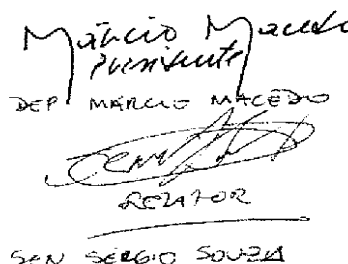 Márcio Macedo
Presidente
DEP. MÁRCIO MACEDO
RELATOR
SEN SÉRGIO SOUZA